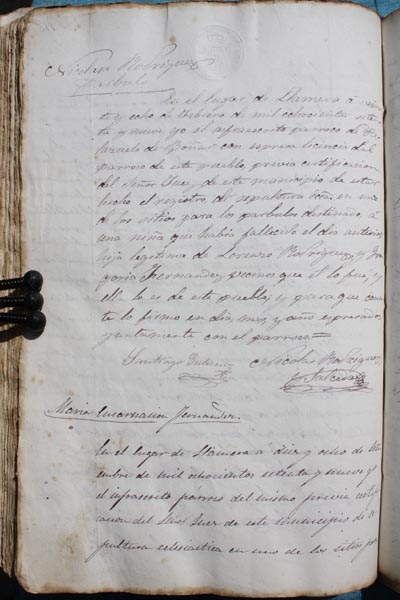 Nicolasa Rodriguez
Parbula
En el lugar de Llamera á vein
te y ocho de Febrero de mil ochocientos seten
ta y nueve yo el infrascrito parroco de
de Boñar con espresa licencia del
parroco de este pueblo, previa certificacion
del Señor Juez, de este municipio de estar
hecho el registro, di sepultura ecca. en uno
de los sitios para los parbulos destinado, á
una niña que habia fallecido el dia anterior
hija legitima de Lorenzo Rodriguez, y Gre
goria Fernandez, vecinos que él lo fue, y
ella lo es de este pueblo, y para que cons
te lo firmo en dia, mes, y año espresados
juntamente con el parroco=
Santiago Nicolas Rodriguez
y Salcedo
Maria Encarnacion Fernandez
En el lugar de Llamera a diez y ocho de
embre de mil ochocientos setenta y nueve yo
el infrascrito parroco del mismo previa certifi
cacion del Señor Juez de este municipio di se
pultura eclesiastica en uno de los sitios para